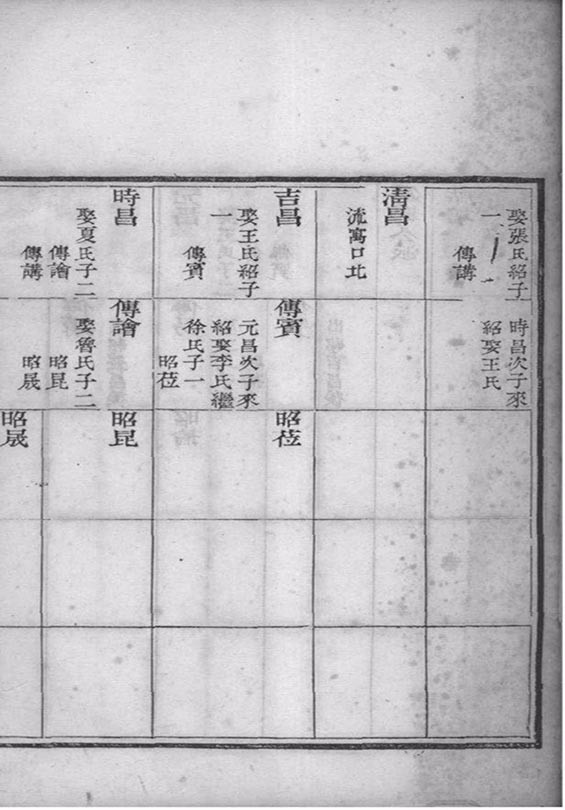 娶張氏紹子
一
傳講
時昌次子來
紹娶王氏
清昌
流寓口北
吉昌
娶王氏紹子
一
傳賓
傳賓
元昌次子來
紹娶李氏繼
徐氏子一
昭莅
昭莅
時昌
娶夏氏子二
傳譮
傳講
傳譮
娶魯氏子二
昭昆
昭晟
昭昆
昭晟